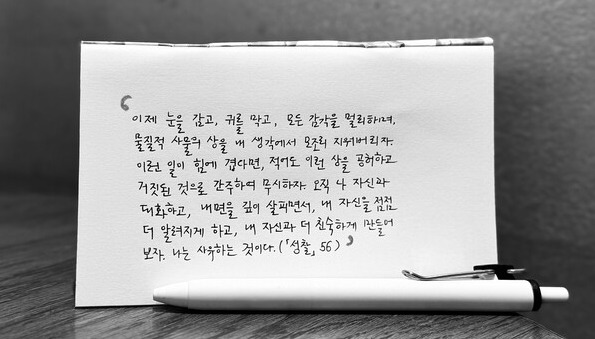 ‘이제 눈을 감고, 귀를 막고, 모든 감각을 멀리하며,
물질적 사물의 상을 내 생각에서 모조리 지워버리자.
이런 일이 힘에 겹다면, 적어도 이런 상을 공허하고
거짓된 것으로 간주하여 무시하자. 오직 나 자신과
대화하고, 내면을 깊이 살피면서, 내 자신을 점점
더 알려지게 하고, 내 자신과 더 친숙하게 만들어
보자. 나는 사유하는 것이다.(「성찰」 56)’